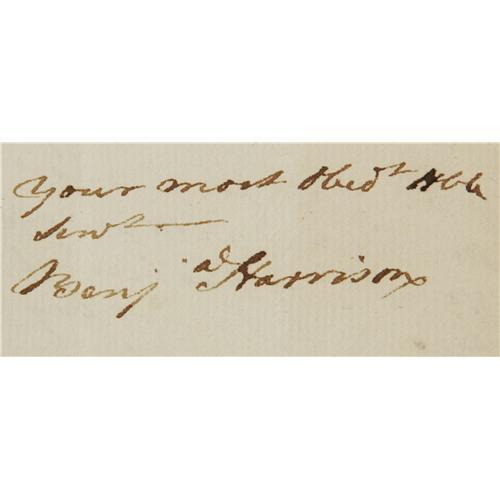 Your most Obedt Hble
Servt
Benja Harrison